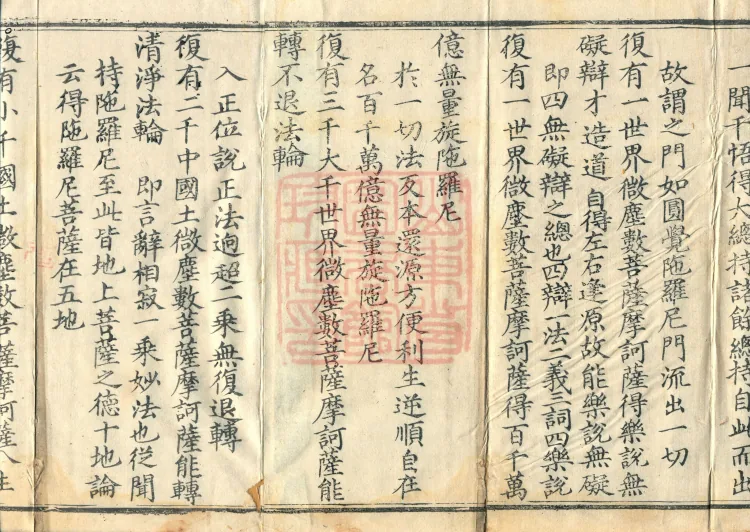 一聞千悟得大總持諸餘總持自此而出
故謂之門如圓覺陁羅尼門流出一切
復有一世界微塵數菩薩摩訶薩得樂說無
礙辯才造道自得左右逢原故能樂說無礙
即四無礙辯之總也四辯一法二義三詞四樂說
復有一世界微塵數菩薩摩訶薩得百千萬
億無量旋陁羅尼
於一切法反本還源方便利生逆順自在
名百千萬億無量旋陁羅尼
復有三千大千世界微塵數菩薩摩訶薩能
轉不退法輪
入正位說正法逈超二乘無復退轉
復有二千中國土微塵數菩薩摩訶薩能轉
清淨法輪 即言辭相寂一乘妙法也從聞
持陁羅尼至此皆地上菩薩之德十地論
云得陁羅尼菩薩在五地
復有小千國土微塵數菩薩摩訶薩八生